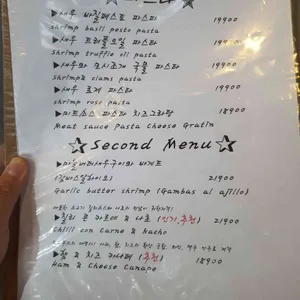 ▶새우 바질페스토 파스타 19900
shrimp basil pesto pasta
▶새우 트러플오일 파스타 19900
shrimp truffle oil pasta
▶새우와 모시조개 국물 파스타 19900
shrimp& clams pasta
▶새우 로제 파스타 19900
shrimp rose pasta
▶미트소스 파스타 치즈그라탕 18900
Meat sauce Pasta Cheese Gratin
☆Second Menu☆
▶마늘버터새우구이와 바게트
(감바스알아히요) 21900
Garlic butter shrimp (Gambas al ajillo)
▶칠리 콘 카르네 & 나쵸 (인기,추천) 21900
chilli con Carne & Nacho
▶햄 & 치즈 카나페 (추천) 18900
Ham & Cheese Canape